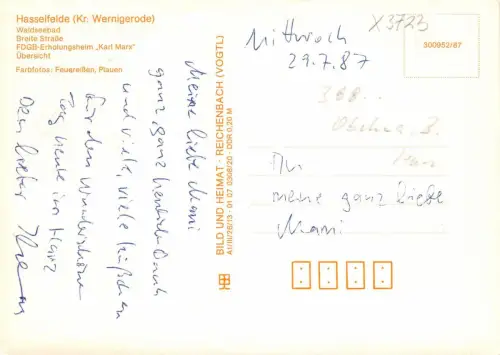 Hasselfelde (Kr. Wernigerode)
Waldseebad
Breite Straße
FDGB-Erholungsheim „Karl Marx"
Übersicht
Farbfotos: Feuereißen, Plauen
Meine liebe Mami
ganz, ganz herzlich Dank
und viele, viele Küßchen
für den wunderschönen
Tag heute im Harz
Dein lieber
BILD UND HEIMAT · REICHENBACH (VOGTL)
A1/III/26/13 · 01 07 0308/20 · DDR 0,20 M
X3723
300952/87
Mittwoch
29.7.87
An
meine ganz liebe
Mami